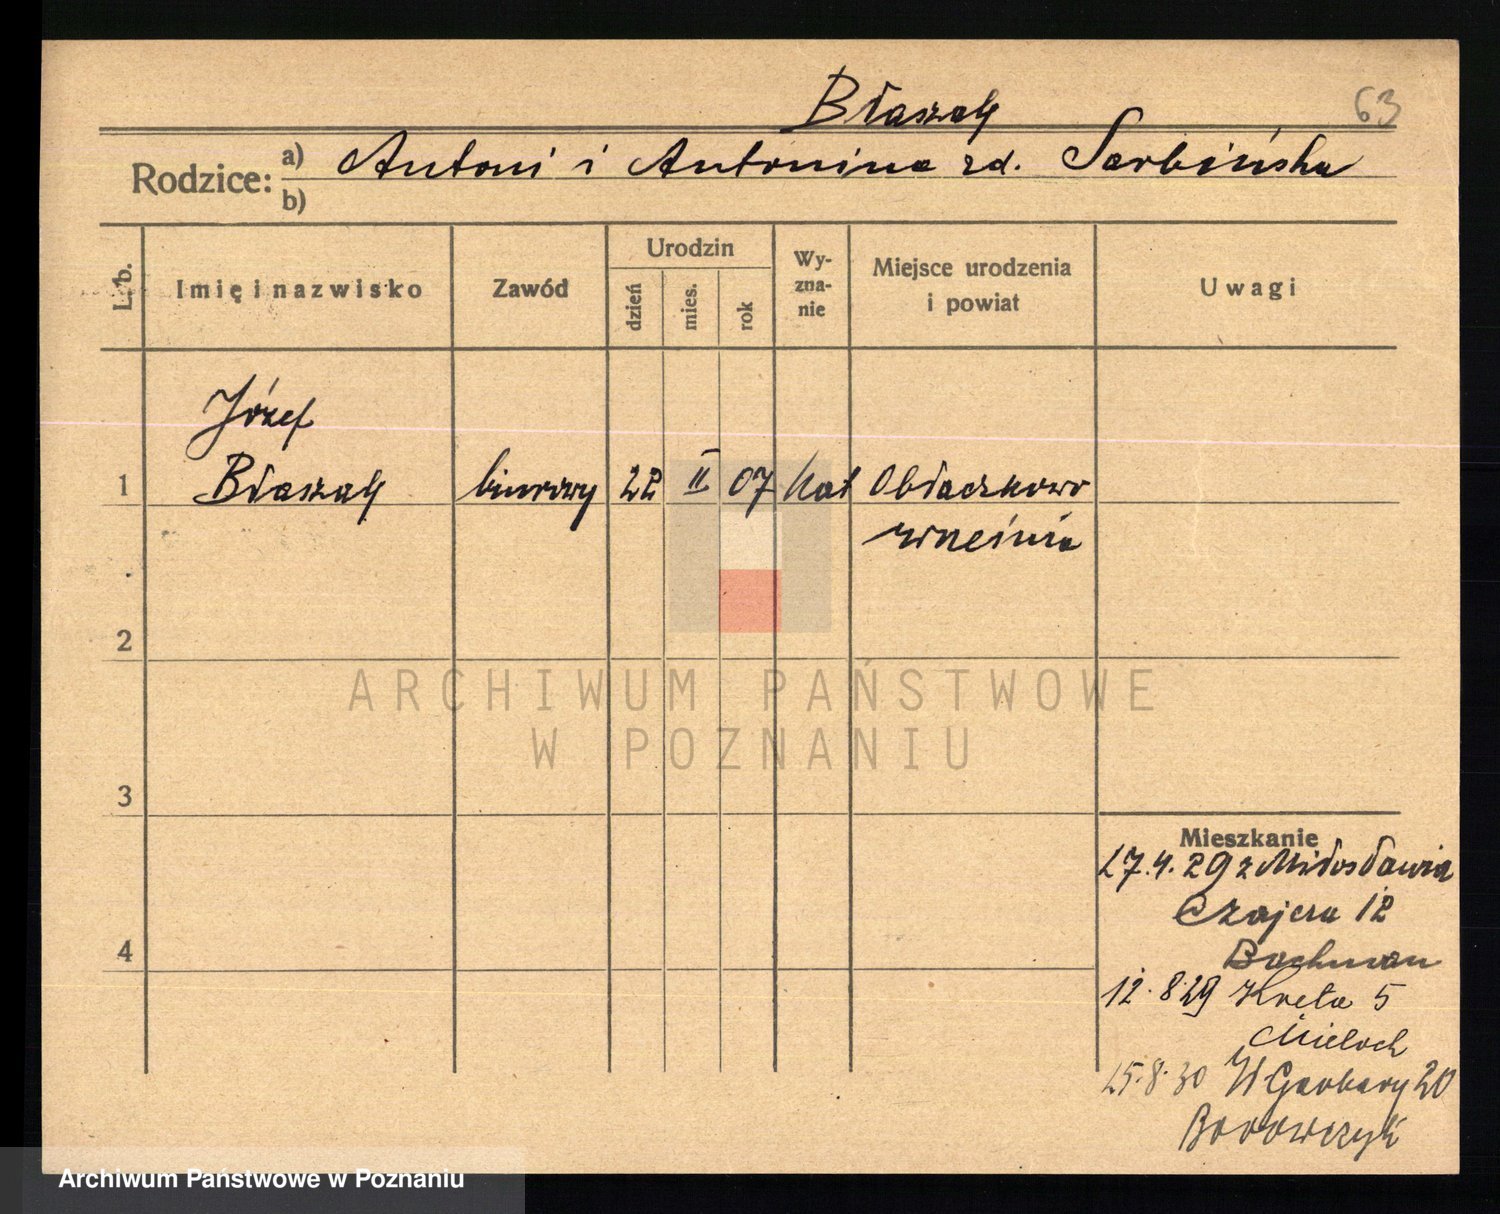 Błaszak
63
Rodzice: a) Antoni i Antonina zd. Sarbińska
b)
L. b.
Imię i nazwisko
Zawód
Urodzin
dzień
mies.
rok
Wy-
zna-
nie
Miejsce urodzenia
i powiat
Uwagi
Józef
1 Błaszak biurowy 22 II 07 kat Obłaczkowo
września
2
ARCHIWUM PAŃSTWOWE
W POZNANIU
3
Mieszkanie
17.4.29 z Miłosławia
Czajcza 12
4
Bachman
12.8.29 Kręta 5
Mieloch
15.8.30 W Garbary 20
Borowczyk
Archiwum Państwowe w Poznaniu